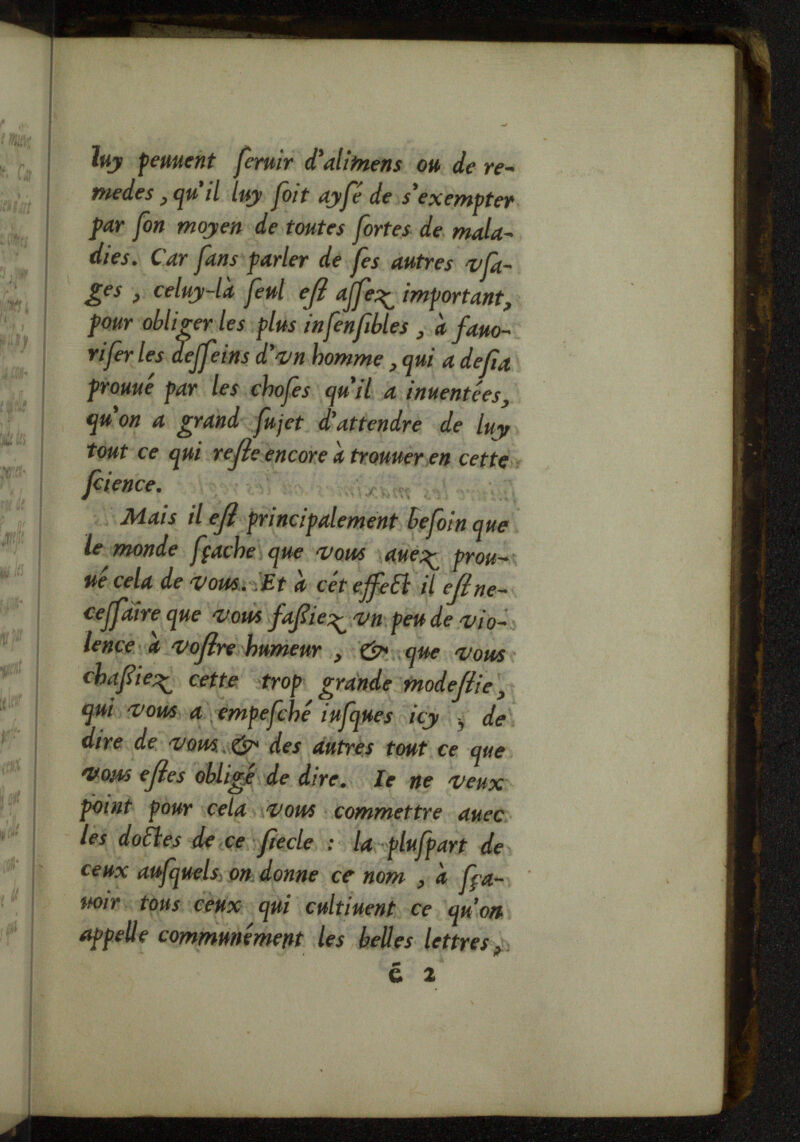 luy peuuent ſeruir d'alimens ou de re-
medes, qu'il luy ſoit ayſé de s'exempter
par ſon moyen de toutes ſortes de mala-
dies. Car ſans parler de ſes autres vſa-
ges, celuy-là ſeul eſt aſſez important,
pour obliger les plus inſenſibles, à fauo-
riſer les deſſeins d'vn homme, qui a deſia
prouué par les choſes qu'il a inuentées,
qu'on a grand ſujet d'attendre de luy
tout ce qui reſte encore à trouuer en cette
ſcience.
Mais il eſt principalement beſoin que
le monde ſçache que vous auez prou-
ué cela de vous. Et à cét effect il eſt ne-
ceſſaire que vous faſſiez vn peu de vio-
lence à voſtre humeur, & que vous
chaſſiez cette trop grande modeſtie,
qui vous a empeſché iuſques icy, de
dire de vous & des autres tout ce que
vous eſtes obligé de dire. Ie ne veux
point pour cela vous commettre auec
les doctes de ce ſiecle : la pluſpart de
ceux auſquels on donne ce nom, à ſça-
uoir tous ceux qui cultiuent ce qu'on
appelle communément les belles lettres,
ẽ 2